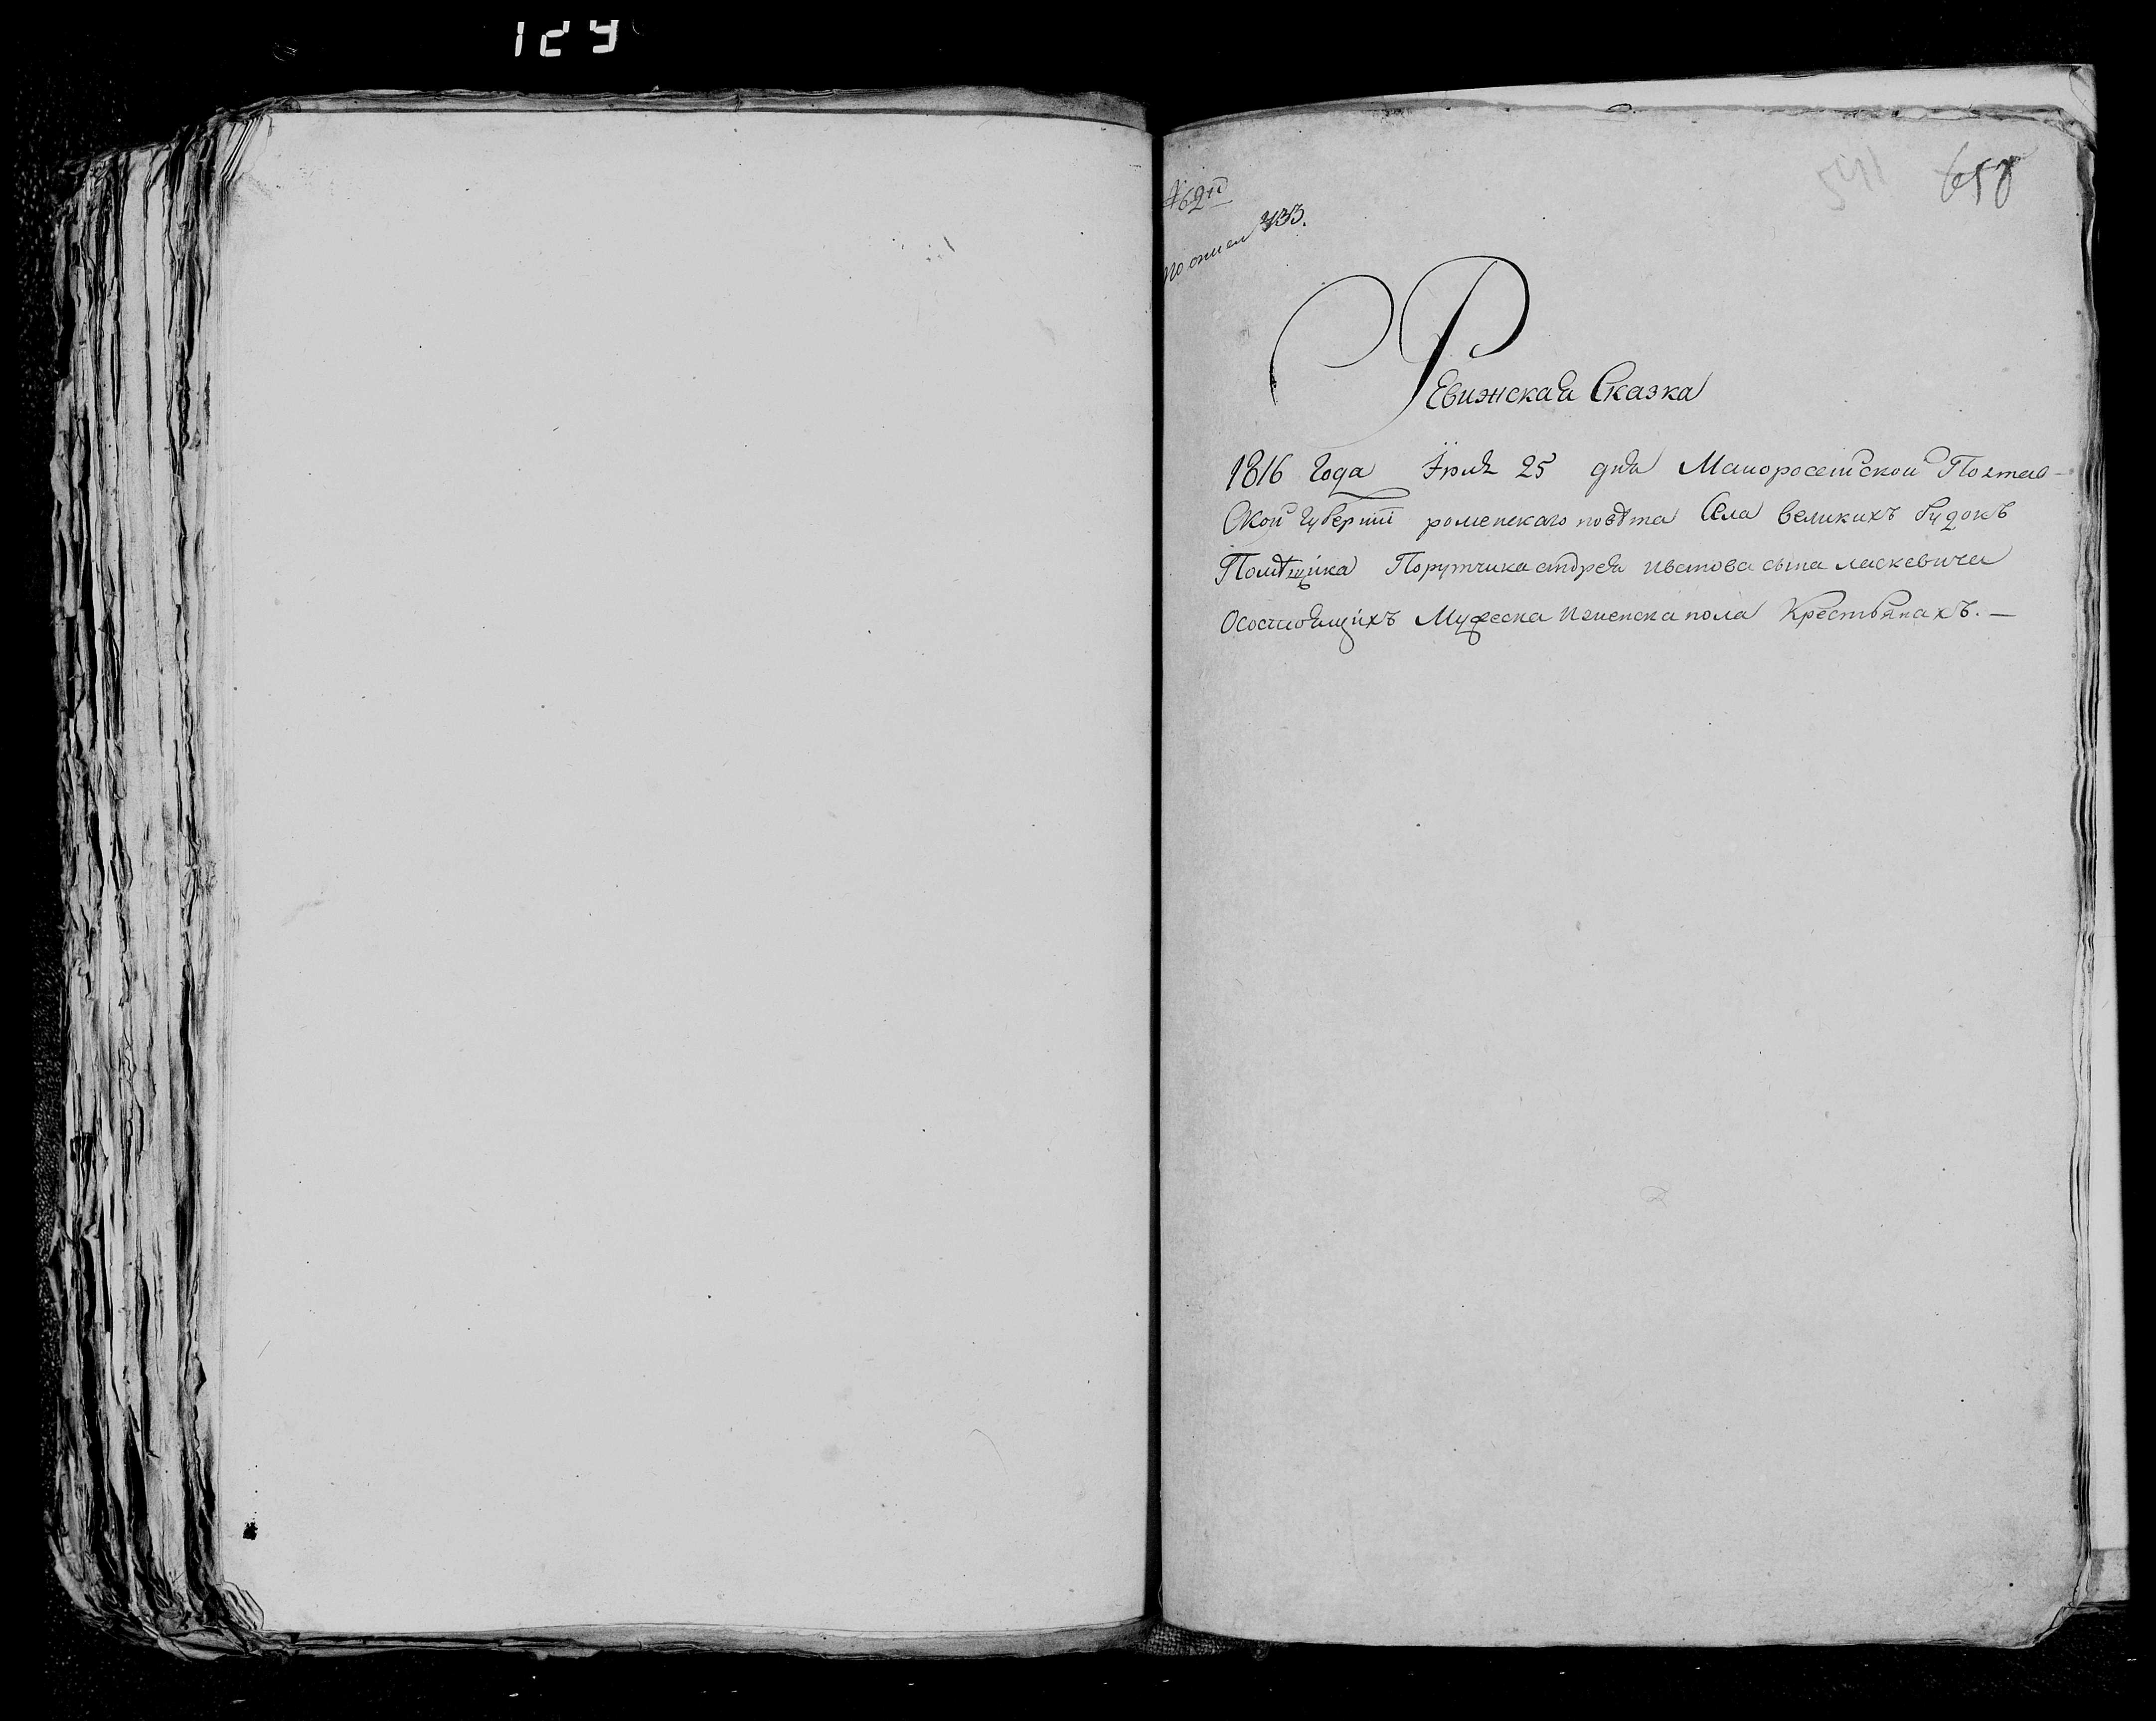 129
№ 62й
по описи 433.
541 658
Ревижская Сказка
1816 Года Iюля 25 дня Малоросейской Полтав-
Ской губернiи роменскаго повѣта Села великихъ будокъ
Помѣщика Порутчика андрея иванова сына ласкевича
Осостоящихъ Мужеска иженска пола Крестьянахъ. —